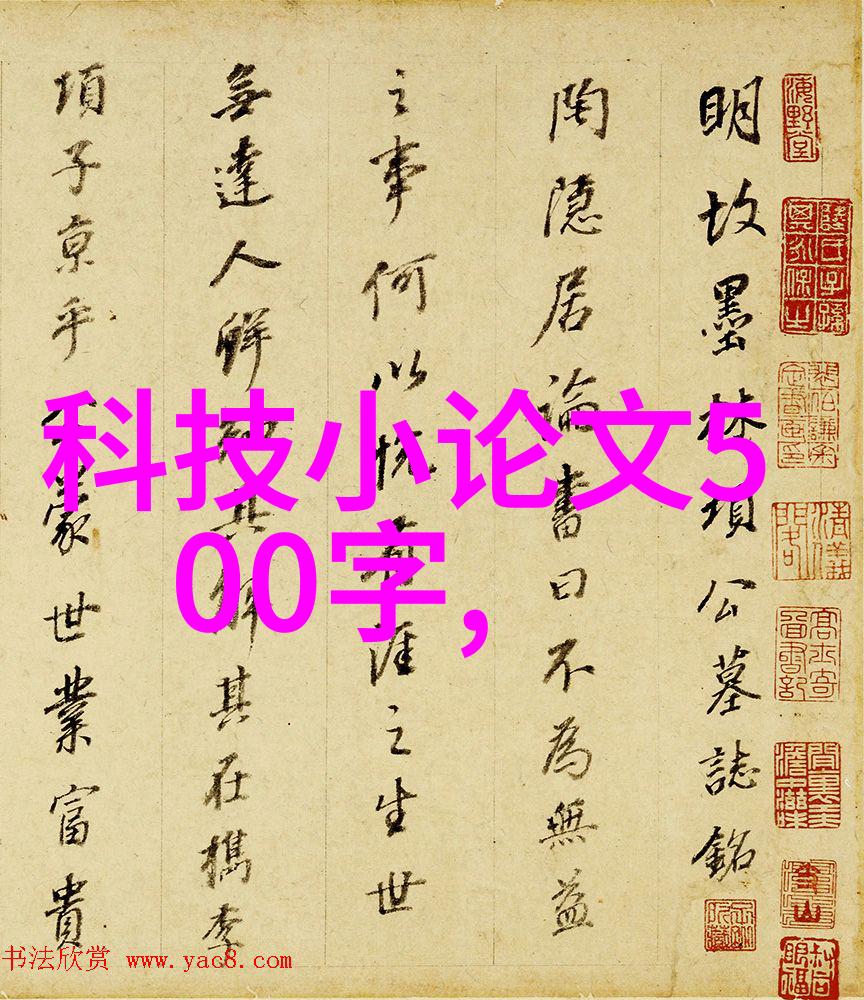 明故墨林項公墓誌銘
陶隱居論書曰不為無益
之事何以悅有涯之生世
無達人鮮知其解其在檇李
項子京乎公蒙世業富貴
科技小论文5
00字,
海野堂
书法欣赏 www.yac8.com